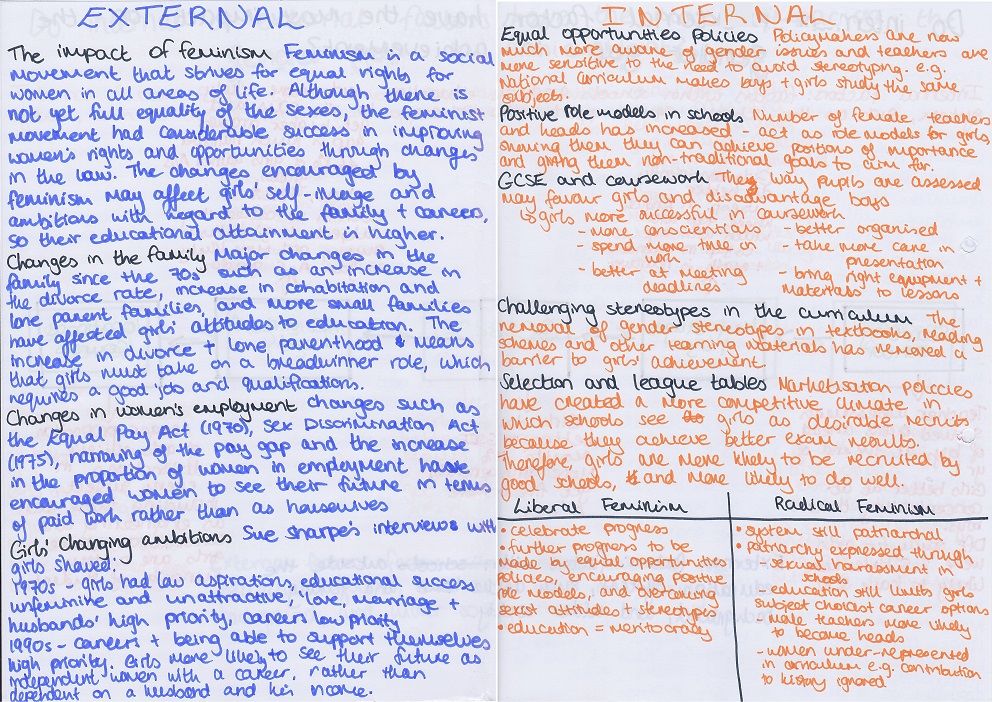 EXTERNAL
The impact of feminism Feminism is a social
movement that strives for equal rights for
women in all areas of life. Although there is
not yet full equality of the sexes, the feminist
movement had considerable success in improving
women's rights and opportunities through changes
in the law. The changes encouraged by
feminism may affect girls' self-image and
ambitions with regard to the family + careers,
so their educational attainment is higher.
Changes in the family Major changes in the
family since the 70s such as an increase in
the divorce rate, increase in cohabitation and
lone parent families, and more small families
have affected girls' attitudes to education. The
increase in divorce + lone parenthood means
that girls must take on a breadwinner role, which
requires a good job and qualifications.
Changes in women's employment changes such as
the Equal Pay Act (1970), Sex Discrimination Act
(1975), narrowing of the pay gap and the increase
in the proportion of women in employment have
encouraged women to see their future in terms
of paid work rather than as housewives
Girls' Changing ambitions Sue sharpe's interviews with
girls showed:
1970s - girls had low aspirations, educational success
unfeminine and unattractive, 'love, marriage +
husbands' high priority, careers low priority
1990s - careers + being able to support themselves
high priority. Girls more likely to see their future as
independent women with a career, rather than
dependent on a husband and his income.
INTERNAL
Equal opportunities policies Policymakers are now
much more aware of gender issues and teachers are
more sensitive to the need to avoid stereotyping. e.g.
National Curriculum makes boys + girls study the same
subjects.
Positive role models in schools Number of female teachers
and heads has increased - act as role models for girls,
showing them they can achieve positions of importance
and giving them non-traditional goals to aim for.
GCSE and coursework The way pupils are assessed
may favour girls and disadvantage boys
↳ girls more successful in coursework
- more conscientious
- spend more time on
work
- better at meeting
deadlines
- better organised
- take more care in
presentation
- bring right equipment +
materials to lessons
Challenging stereotypes in the curriculum The
removal of gender stereotypes in textbooks, reading
schemes and other learning materials has removed a
barrier to girls' achievement.
Selection and league tables Marketisation policies
have created a more competitive climate in
which schools see girls as desirable recruits
because they achieve better exam results.
Therefore, girls are more likely to be recruited by
good schools, and more likely to do well.
Liberal Feminism
• celebrate progress
• further progress to be
made by equal opportunities
policies, encouraging positive
role models, and overcoming
sexist attitudes + stereotypes
• education = meritocracy
Radical Feminism
• system still patriarchal
• patriarchy expressed through
- sexual harassment in
schools
- education still limits girls
subject choices + career options
- male teachers more likely
to become heads
- women under-represented
in curriculum e.g. contribution
to history ignored